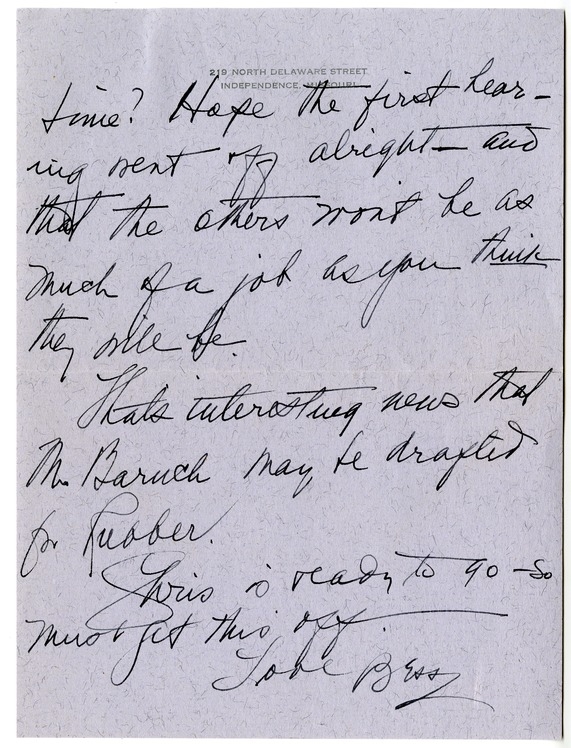 219 NORTH DELAWARE STREET
INDEPENDENCE, MISSOURI
time? Hope the first hear-
ing went off alright — and
that the others won't be as
much of a job as you think
they will be.
That's interesting news that
Mr. Baruch may be drafted
for Rubber.
Chris is ready to go — so
must get this off.
Love Bess